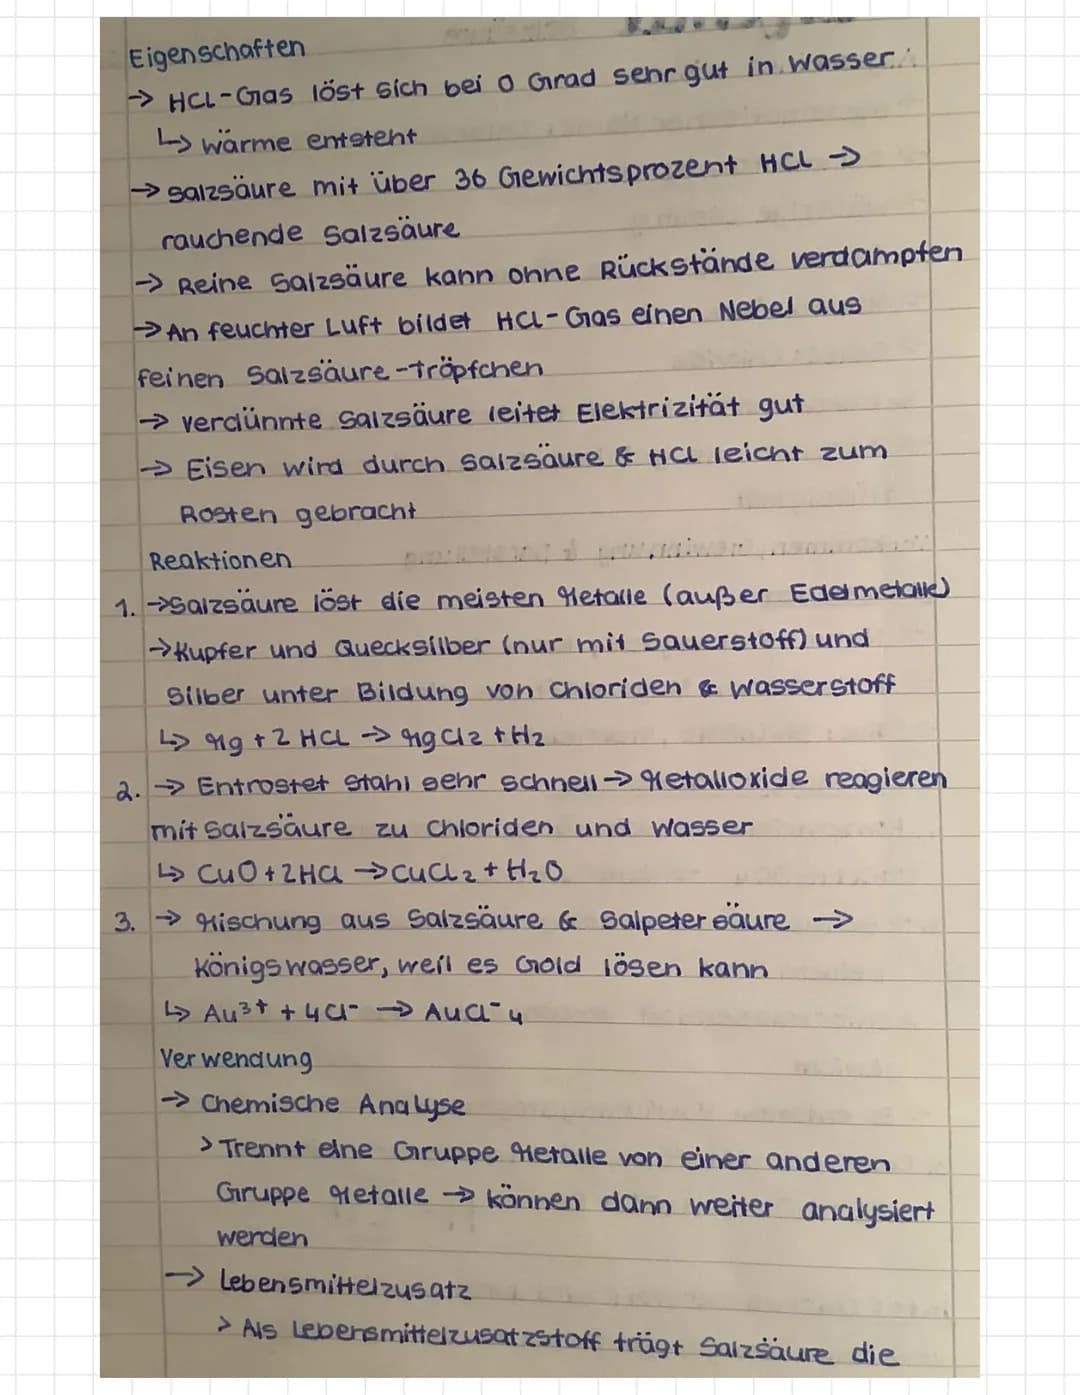 Eigenschaften
→ HCL-Gas löst sich bei 0 Grad sehr gut in Wasser
↳ Wärme entsteht
→ Salzsäure mit über 36 Gewichtsprozent HCL →
rauchende Salzsäure
→ Reine Salzsäure kann ohne Rückstände verdampfen
→ An feuchter Luft bildet HCl-Gas einen Nebel aus
feinen Salzsäure-tröpfchen
→ verdünnte Salzsäure leitet Elektrizität gut
→ Eisen wird durch Salzsäure & HCl leicht zum
Rosten gebracht
Reaktionen
1. → Salzsäure löst die meisten Metalle (außer Edelmetalle)
→ Kupfer und Quecksilber (nur mit Sauerstoff) und
Silber unter Bildung von Chloriden & Wasserstoff
↳ Mg + 2 HCL → MgCl2 + H2
2. → Entrostet Stahl sehr schnell → Metalloxide reagieren
mit Salzsäure zu Chloriden und Wasser
↳ CuO + 2HCl → CuCl2 + H2O
3. → Mischung aus Salzsäure & Salpetersäure →
Königswasser, weil es Gold lösen kann
↳ Au³⁺ + 4Cl⁻ → AuCl⁻4
Verwendung
→ Chemische Analyse
> Trennt eine Gruppe Metalle von einer anderen
Gruppe Metalle → können dann weiter analysiert
werden
→ Lebensmittelzusatz
> Als Lebensmittelzusatzstoff trägt Salzsäure die